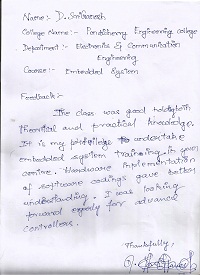 Name:- D. Srinivasan
College Name:- Pondicherry Engineering college
Department:- Electronics & Communication
Engineering
Course:- Embedded System
Feedback:-
The class was good both in
theoretical and practical knowledge.
It is my privilege to undertake
embedded system training in your
centre. Hardware implementation
of software codings gave better
understanding. I was looking
forward eagerly for advance
controllers.
Thankfully,